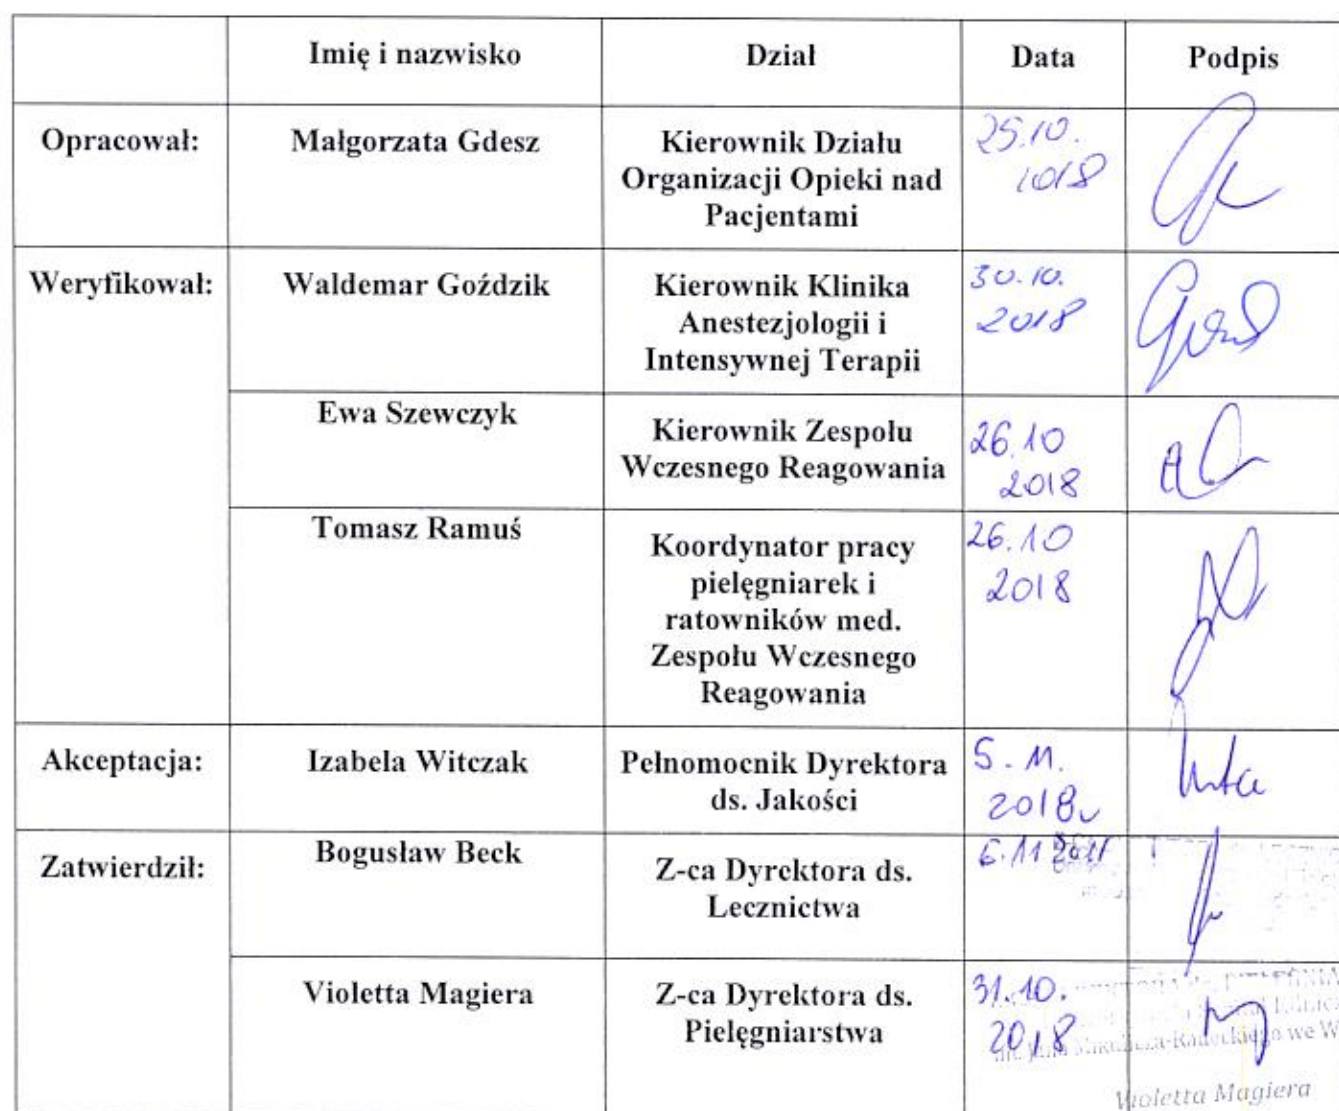 Imię i nazwisko Dział Data Podpis
Opracował: Małgorzata Gdesz Kierownik Działu 25.10.
Organizacji Opieki nad 1018
Pacjentami
Weryfikował: Waldemar Goździk Kierownik Klinika 30.10.
Anestezjologii i 2018
Intensywnej Terapii
Ewa Szewczyk Kierownik Zespołu 26.10
Wczesnego Reagowania 2018
Tomasz Ramuś Koordynator pracy 26.10
pielęgniarek i 2018
ratowników med.
Zespołu Wczesnego
Reagowania
Akceptacja: Izabela Witczak Pełnomocnik Dyrektora 5.11.
ds. Jakości 2018
Zatwierdził: Bogusław Beck Z-ca Dyrektora ds. 6.11
Lecznictwa
Violetta Magiera Z-ca Dyrektora ds. 31.10.
Pielęgniarstwa 2018
we W
Violetta Magiera